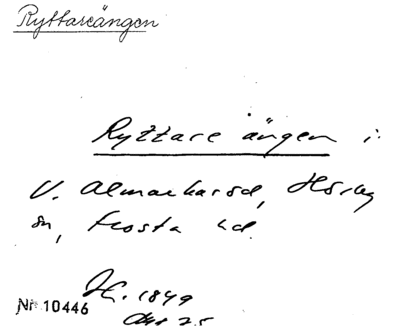 Ryttareängen
Ryttare ängen i
V. Almarharod, Hörby
sn, Frosta hd.
1849
Nr 10446
25